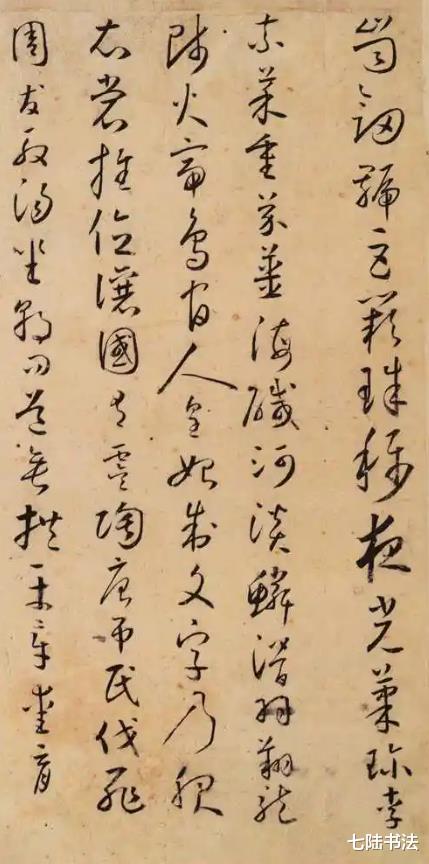 崗劒號巨闕珠稱夜光菓珍李
柰菜重芥薑海醎河淡鱗潛羽翔龍
師火帝鳥官人皇始制文字乃服
衣裳推位讓國有虞陶唐弔民伐罪
周發殷湯坐朝問道垂拱平章愛育
七陆书法